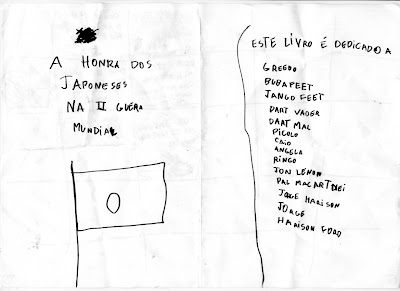 A HONRA DOS
JAPONESES
NA II GUERA
MUNDIAL
ESTE LIVRO É DEDICADO A
GREEDO
BUBAFEET
JANGO FEET
DART VADER
DAAT MAL
PICOLO
CAIO
ANGELA
RINGO
JON LENON
PAL MACARTINEI
JORGE HARISON
JORGE
HARISON FORD